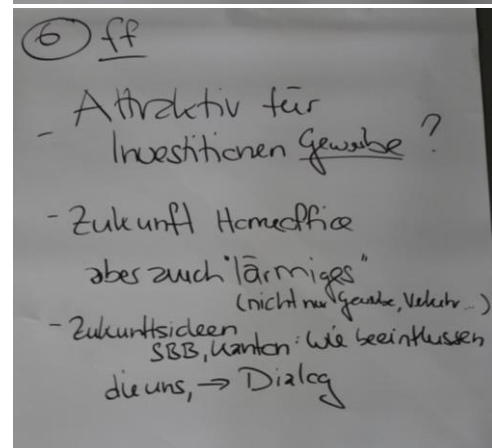 6 ff
- Attraktiv für
Investitionen Gewerbe ?
- Zukunft Homeoffice
aber auch "lärmiges"
(nicht nur Gewerbe, Verkehr...)
- Zukunftsideen
SBB, Kanton: Wie beeinflussen
die uns, → Dialog